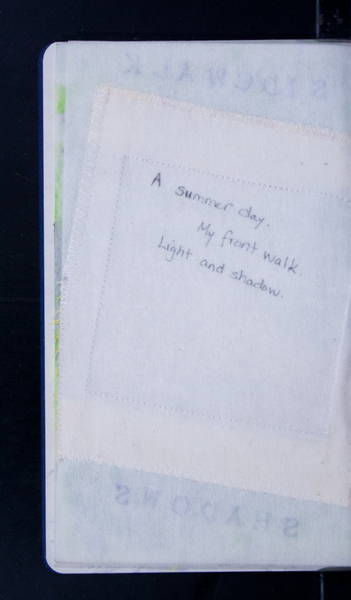 SIDEWALK
A summer day.
My front walk.
Light and shadow.
SHADOWS